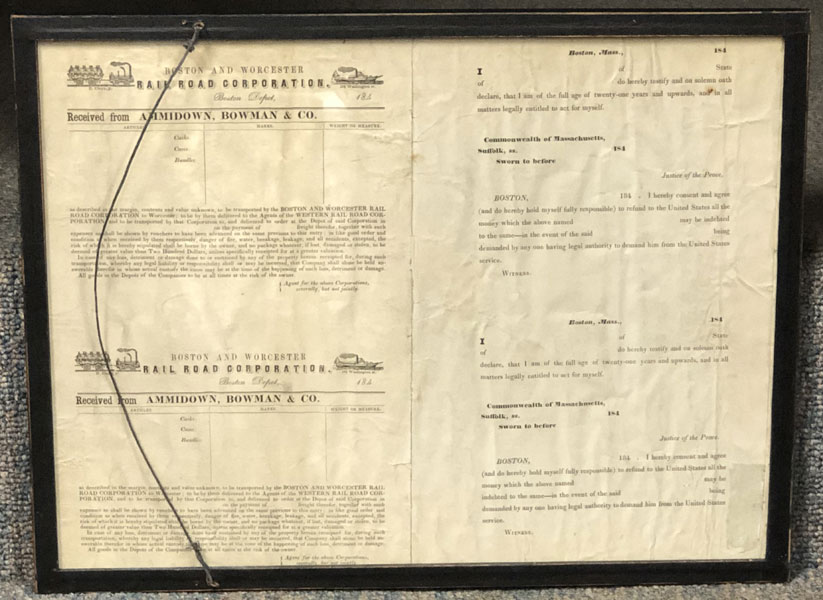 BOSTON AND WORCESTER
RAIL ROAD CORPORATION.
Boston Depot, 184
Received from AMMIDOWN, BOWMAN & CO.
ARTICLES. MARKS. WEIGHT OR MEASURE.
Casks
Cases
Bundles
as described in the margin, contents and value unknown, to be transported by the BOSTON AND WORCESTER RAIL
ROAD CORPORATION to Worcester; to be by them delivered to the Agents of the WESTERN RAIL ROAD COR-
PORATION, and to be transported by that Corporation to, and delivered to order at the Depot of said Corporation in
on the payment of freight thereafter, together with such
expenses as shall be shown by vouchers to have been advanced on the same previous to this entry; in like good order and
condition as when received by them respectively, dangers of fire, water, breakage, leakage, and all accidents, excepted, the
risk of which is hereby stipulated shall be borne by the owner, and no package whatever, if lost, damaged or stolen, to be
deemed of greater value than Two Hundred Dollars, unless specifically receipted for at a greater valuation.
In case of any loss, detriment or damage done to or sustained by any of the property herein receipted for, during such
transportation, whereby any legal liability or responsibility shall or may be incurred, that Company shall alone be held an-
swerable therefor in whose actual custody the same may be at the time of the happening of such loss, detriment or damage.
All goods in the Depots of the Companies to be at all times at the risk of the owner.
Agent for the above Corporations,
severally, but not jointly.
BOSTON AND WORCESTER
RAIL ROAD CORPORATION.
Boston Depot, 184
Received from AMMIDOWN, BOWMAN & CO.
ARTICLES. MARKS. WEIGHT OR MEASURE.
Casks
Cases
Bundles
as described in the margin, contents and value unknown, to be transported by the BOSTON AND WORCESTER RAIL
ROAD CORPORATION to Worcester; to be by them delivered to the Agents of the WESTERN RAIL ROAD COR-
PORATION, and to be transported by that Corporation to, and delivered to order at the Depot of said Corporation in
on the payment of freight thereafter, together with such
expenses as shall be shown by vouchers to have been advanced on the same previous to this entry; in like good order and
condition as when received by them respectively, dangers of fire, water, breakage, leakage, and all accidents, excepted, the
risk of which it is hereby stipulated shall be borne by the owner, and no package whatever, if lost, damaged or stolen, to be
deemed of greater value than Two Hundred Dollars, unless specifically receipted for at a greater valuation.
In case of any loss, detriment or damage done to or sustained by any of the property herein receipted for, during such
transportation, whereby any legal liability or responsibility shall or may be incurred, that Company shall alone be held an-
swerable therefor in whose actual custody the same may be at the time of the happening of such loss, detriment or damage.
All goods in the Depots of the Companies to be at all times at the risk of the owner.
Agent for the above Corporations,
severally, but not jointly.
Boston, Mass., 184
I of State
of do hereby testify and on solemn oath
declare, that I am of the full age of twenty-one years and upwards, and in all
matters legally entitled to act for myself.
Commonwealth of Massachusetts,
Suffolk, ss. 184
Sworn to before
Justice of the Peace.
BOSTON, 184 . I hereby consent and agree
(and do hereby hold myself fully responsible) to refund to the United States all the
money which the above named may be indebted
to the same—in the event of the said being
demanded by any one having legal authority to demand him from the United States
service.
WITNESS.
Boston, Mass., 184
I of State
of do hereby testify and on solemn oath
declare, that I am of the full age of twenty-one years and upwards, and in all
matters legally entitled to act for myself.
Commonwealth of Massachusetts,
Suffolk, ss. 184
Sworn to before
Justice of the Peace.
BOSTON, 184 . I hereby consent and agree
(and do hereby hold myself fully responsible) to refund to the United States all the
money which the above named may be
indebted to the same—in the event of the said being
demanded by any one having legal authority to demand him from the United States
service.
WITNESS.